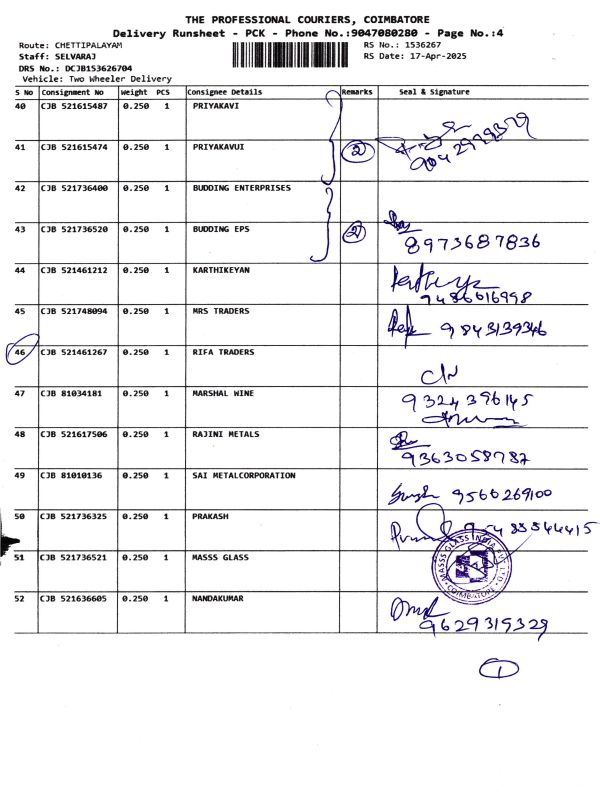 THE PROFESSIONAL COURIERS, COIMBATORE
Delivery Runsheet - PCK - Phone No.:9047080280 - Page No.:4
Route: CHETTIPALAYAM RS No.: 1536267
Staff: SELVARAJ RS Date: 17-Apr-2025
DRS No.: DCJB153626704
Vehicle: Two Wheeler Delivery
S No Consignment No Weight PCS Consignee Details Remarks Seal & Signature
40 CJB 521615487 0.250 1 PRIYAKAVI
41 CJB 521615474 0.250 1 PRIYAKAVUI 2
42 CJB 521736400 0.250 1 BUDDING ENTERPRISES
43 CJB 521736520 0.250 1 BUDDING EPS 2
8973687836
44 CJB 521461212 0.250 1 KARTHIKEYAN
9486616998
45 CJB 521748094 0.250 1 MRS TRADERS
9843139346
46 CJB 521461267 0.250 1 RIFA TRADERS
47 CJB 81034181 0.250 1 MARSHAL WINE
9324396145
48 CJB 521617506 0.250 1 RAJINI METALS
9363058787
49 CJB 81010136 0.250 1 SAI METALCORPORATION
9566269100
50 CJB 521736325 0.250 1 PRAKASH
51 CJB 521736521 0.250 1 MASSS GLASS
MASSS GLASS INDIA PVT LTD
COIMBATORE
52 CJB 521636605 0.250 1 NANDAKUMAR
9629319329
1